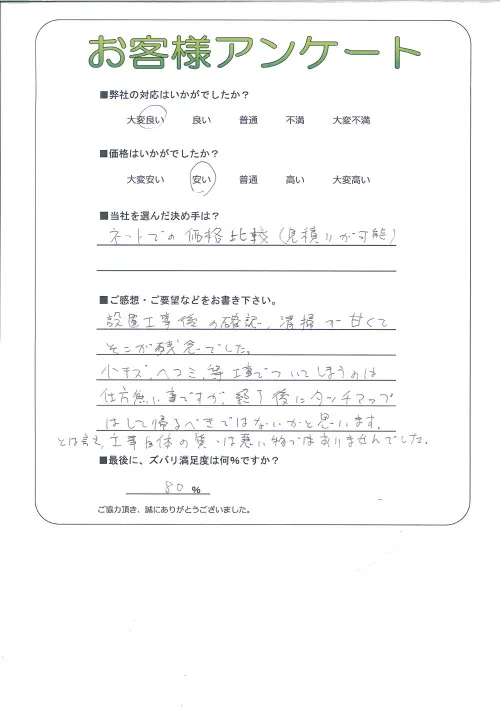 お客様アンケート
■弊社の対応はいかがでしたか？
大変良い 良い 普通 不満 大変不満
■価格はいかがでしたか？
大変安い 安い 普通 高い 大変高い
■当社を選んだ決め手は？
ネットでの価格比較(見積りが可能)
■ご感想・ご要望などをお書き下さい。
設置工事後の確認、清掃が甘くて
そこが残念でした。
小キズ、ヘコミ、等工事でついてしまうのは
仕方無い事ですが、終了後にタッチアップ
はして帰るべきではないかと思います。
とは言え、工事自体の質は悪い物ではありませんでした。
■最後に、ズバリ満足度は何%ですか？
80 %
ご協力頂き、誠にありがとうございました。